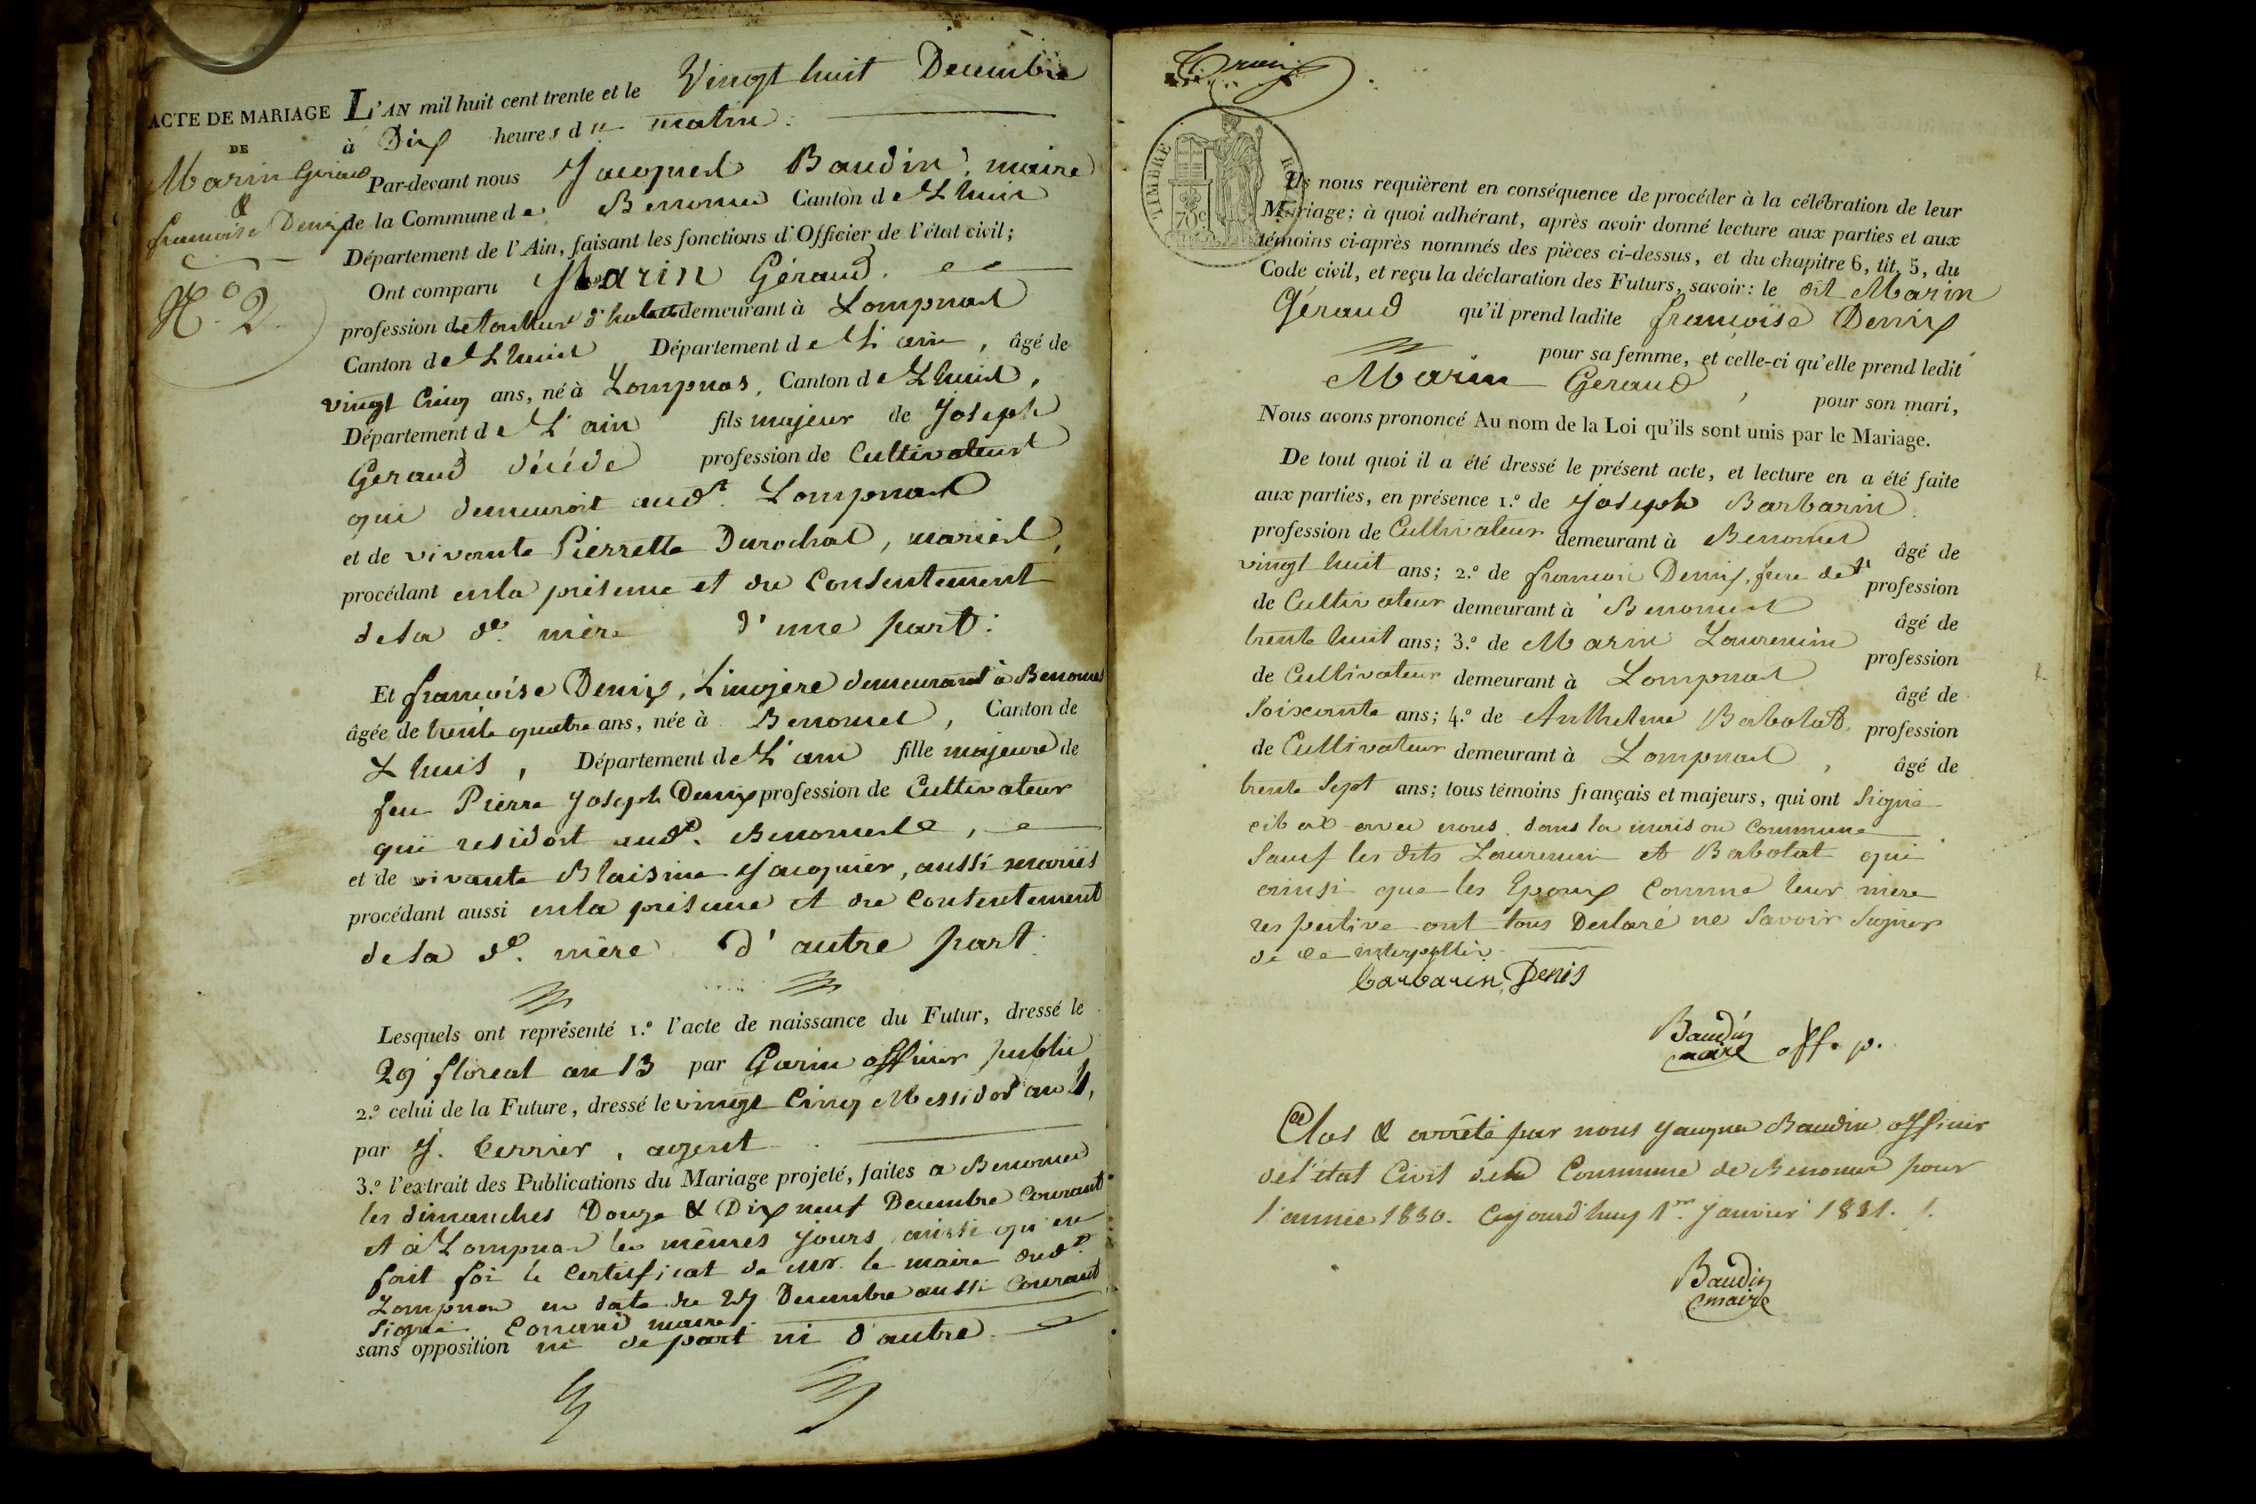 ACTE DE MARIAGE
DE
Marin Géraud
&
françoise Denix
N.º 2.
L'AN mil huit cent trente et le Vingt huit Decembre
à Dix heures du matin.
Par-devant nous Jacques Baudin, maire
de la Commune de Benonces Canton de Lhuis
Département de l'Ain, faisant les fonctions d'Officier de l'état civil;
Ont comparu Marin Géraud.
profession de demeurant à Lompnas
Canton de Lhuis Département de L'ain, âgé de
vingt Cinq ans, né à Lompnas, Canton de Lhuis,
Département de L'ain fils majeur de Joseph
Geraud décédé profession de Cultivateur
qui demeuroit aud.t Lompnas
et de vivante Pierrette Durochat, mariés,
procédant en la présence et du Consentement
de sa d.e mère d'une part:
Et françoise Denix, demeurant à Benonces
âgée de trente quatre ans, née à Benonces, Canton de
Lhuis, Département de L'ain fille majeure de
feu Pierre Joseph Denix profession de Cultivateur
qui residoit aud.t Benonces,
et de vivante Blaisine Jacquier, aussi mariés
procédant aussi en la présence et du Consentement
de sa d.e mère d'autre part.
Lesquels ont représenté 1.º l'acte de naissance du Futur, dressé le
29 floreal an 13 par Garin officier public
2.º celui de la Future, dressé le vingt Cinq Messidor an 4,
par J. , agent
3.º l'extrait des Publications du Mariage projeté, faites a Benonces
les dimanches Douze & Dix neuf Decembre Courant
et à Lompnas les mêmes jours ainsi qu'en
fait foi le Certificat de mr. le maire dud.t
Lompnas en date du 27 Decembre aussi Courant
signé maire.
sans opposition ni de part ni d'autre.
TIMBRE ROYAL
70 c
Ils nous requièrent en conséquence de procéder à la célébration de leur
Mariage; à quoi adhérant, après avoir donné lecture aux parties et aux
témoins ci-après nommés des pièces ci-dessus, et du chapitre 6, tit. 5, du
Code civil, et reçu la déclaration des Futurs, savoir: le dit Marin
Géraud qu'il prend ladite françoise Denix
pour sa femme, et celle-ci qu'elle prend ledit
Marin Geraud, pour son mari,
Nous avons prononcé Au nom de la Loi qu'ils sont unis par le Mariage.
De tout quoi il a été dressé le présent acte, et lecture en a été faite
aux parties, en présence 1.º de Joseph Barbarin
profession de Cultivateur demeurant à Benonces âgé de
vingt huit ans; 2.º de françois Denix, frere de profession
de Cultivateur demeurant à Benonces âgé de
trente huit ans; 3.º de Marin Laurencin profession
de Cultivateur demeurant à Lompnas âgé de
Soixante ans; 4.º de Anthelme Babolat, profession
de Cultivateur demeurant à Lompnas, âgé de
trente Sept ans; tous témoins français et majeurs, qui ont Signé
avec nous dans la maison Commune
Sauf les dits Laurencin et Babolat qui
ainsi que les Epoux Comme leur mère
respective ont tous Declaré ne Savoir Signer
de ce
barbarin Denis
Baudin
maire off. p.
Clos & arrêté par nous Jacques Baudin officier
de l'état Civil de la Commune de Benonces pour
l'année 1830. Aujourd'huy 1.er Janvier 1831.
Baudin
maire